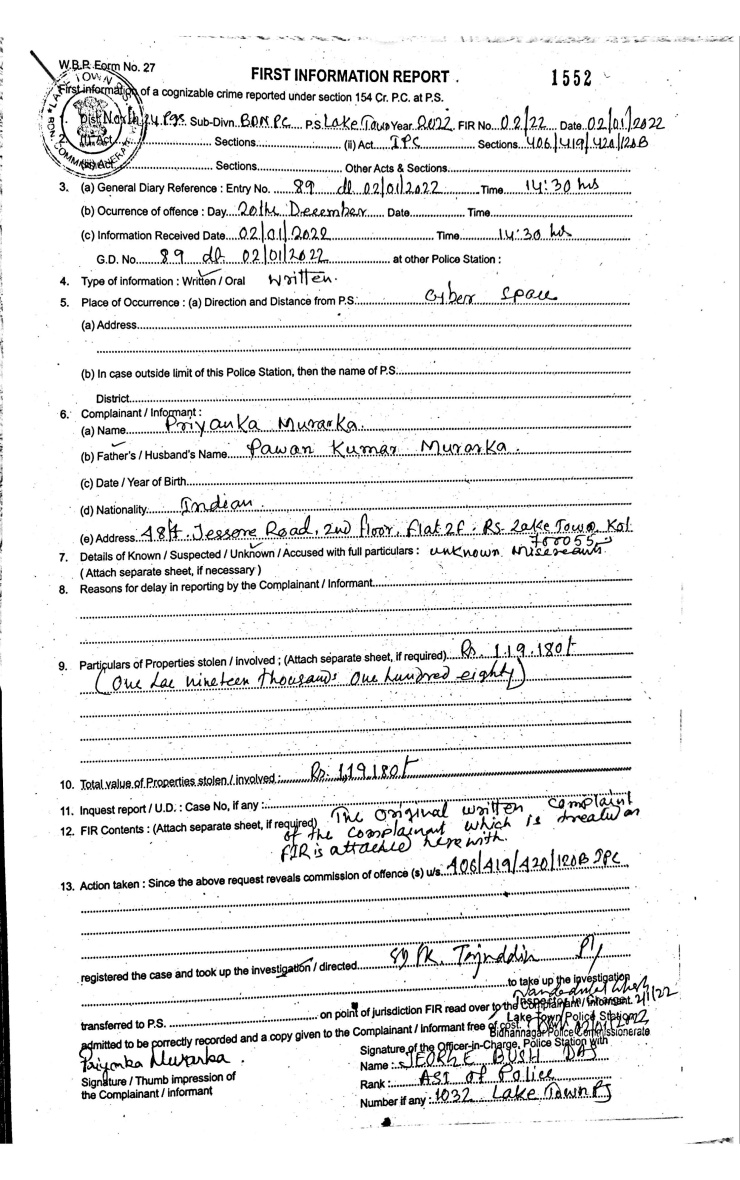 W.B.P. Form No. 27
FIRST INFORMATION REPORT . 1552
First information of a cognizable crime reported under section 154 Cr. P.C. at P.S.
1. Dist North 24 Pgs. Sub-Divn. BDNPC P.S. Lake Town Year 2022 FIR No. 02/22 Date 02/01/2022
Sections (ii) Act IPC Sections 406/419/420/120B
Sections Other Acts & Sections
3. (a) General Diary Reference : Entry No. 89 dt 02/01/2022 Time 14:30 hrs
(b) Ocurrence of offence : Day 20th December Date Time
(c) Information Received Date 02/01/2022 Time 14:30 hrs
G.D. No. 89 dt 02/01/2022 at other Police Station :
4. Type of information : Written / Oral Written.
5. Place of Occurrence : (a) Direction and Distance from P.S.: Cyber Space
(a) Address
(b) In case outside limit of this Police Station, then the name of P.S.
District
6. Complainant / Informant :
(a) Name Priyanka Murarka.
(b) Father's / Husband's Name Pawan Kumar Murarka.
(c) Date / Year of Birth
(d) Nationality Indian.
(e) Address Jessore Road, 2nd floor, Flat 2F. PS. Lake Town, Kol.
700055
7. Details of Known / Suspected / Unknown / Accused with full particulars : unknown Miscreants.
( Attach separate sheet, if necessary )
8. Reasons for delay in reporting by the Complainant / Informant
9. Particulars of Properties stolen / involved ; (Attach separate sheet, if required) Rs. 1,19,180/-
(One Lac nineteen thousands one hundred eighty)
10. Total value of Properties stolen / involved : Rs. 1,19,180/-
11. Inquest report / U.D. : Case No, if any :
12. FIR Contents : (Attach separate sheet, if required) The original written complaint
of the complainant which is treated as
FIR is attached here with.
13. Action taken : Since the above request reveals commission of offence (s) u/s. 406/419/420/120B IPC
registered the case and took up the investigation / directed SI Tajuddin
to take up the investigation
transferred to P.S. on point of jurisdiction FIR read over to the Complainant / Informant. 2/1/22
Lake Town Police Station
admitted to be correctly recorded and a copy given to the Complainant / Informant free of cost.
Bidhannagar Police Commissionerate
Signature of the Officer-in-Charge, Police Station with
Priyanka Murarka.
Signature / Thumb impression of
the Complainant / informant
Name : JEORGE BUSH DAS
Rank : ASI of Police
Number if any : 1032 Lake Town PS